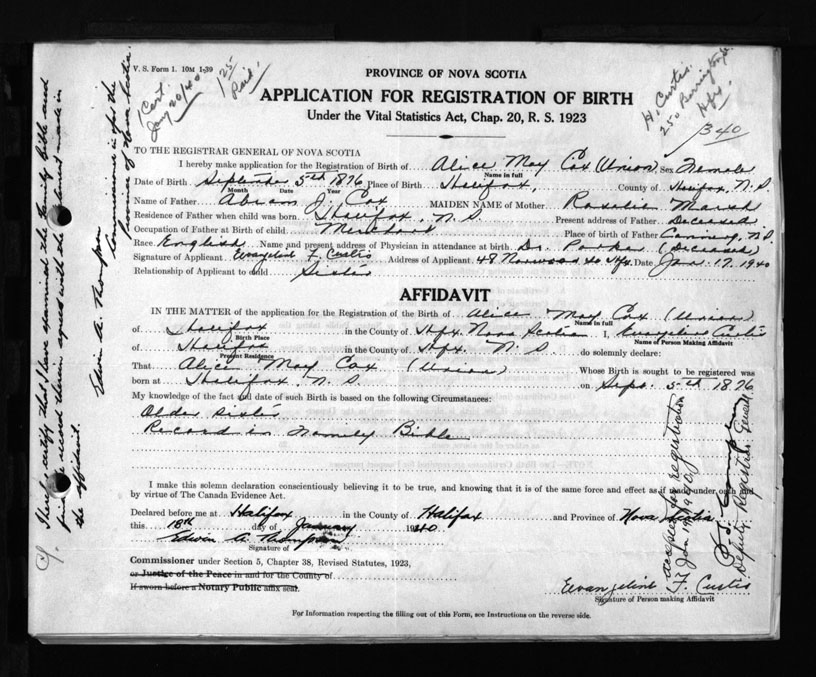 V. S. Form 1. 10M 1-39
1 Cert.
Jany 20/40
1.25
Paid!
H. Curtis.
250 Barrington St.
Hfx.
1340
PROVINCE OF NOVA SCOTIA
APPLICATION FOR REGISTRATION OF BIRTH
Under the Vital Statistics Act, Chap. 20, R. S. 1923
TO THE REGISTRAR GENERAL OF NOVA SCOTIA
I hereby make application for the Registration of Birth of Alice May Cox (Union) Sex Female
Name in full
Date of Birth September 5th 1876 Place of Birth Halifax, County of Halifax, N.S.
Month Day Year
Name of Father Abram J. Cox MAIDEN NAME of Mother Rosalie Marsh
Residence of Father when child was born. Halifax, N.S. Present address of Father Deceased
Occupation of Father at Birth of child. Merchant Place of birth of Father Canning, N.S.
Race English Name and present address of Physician in attendance at birth. Dr. Parker (Deceased)
Signature of Applicant Evangeline F. Curtis Address of Applicant. 48 Norwood St. Hfx. Date Jan. 17, 1940
Relationship of Applicant to child Sister
AFFIDAVIT
IN THE MATTER of the application for the Registration of the Birth of Alice May Cox (Union)
Name in full
of Halifax in the County of Hfx. Nova Scotia I, Evangeline Curtis
Birth Place
Name of Person Making Affidavit
of Halifax in the County of Hfx. N.S. do solemnly declare:
Present Residence
That Alice May Cox (Union) Whose Birth is sought to be registered was
born at Halifax, N.S. on Sept. 5th 1876
My knowledge of the fact and date of such Birth is based on the following Circumstances:
Older sister
Record in Family Bible
I make this solemn declaration conscientiously believing it to be true, and knowing that it is of the same force and effect as if made under oath and
by virtue of The Canada Evidence Act.
Declared before me at Halifax in the County of Halifax and Province of Nova Scotia
this 18th day of January 1940
Edwin A. Thompson
Signature of
Commissioner under Section 5, Chapter 38, Revised Statutes, 1923,
or Justice of the Peace in and for the County of
If sworn before a Notary Public affix seal.
Evangeline F. Curtis
Signature of Person making Affidavit
For Information respecting the filling out of this Form, see Instructions on the reverse side.
I hereby certify that I have examined the Family Bible and
find the record therein agrees with the statement made in
the affidavit.
Edwin A. Thompson
Commissioner for the
Province of Nova Scotia.
accepted for registration
Jan 19 1940
Deputy Registrar General